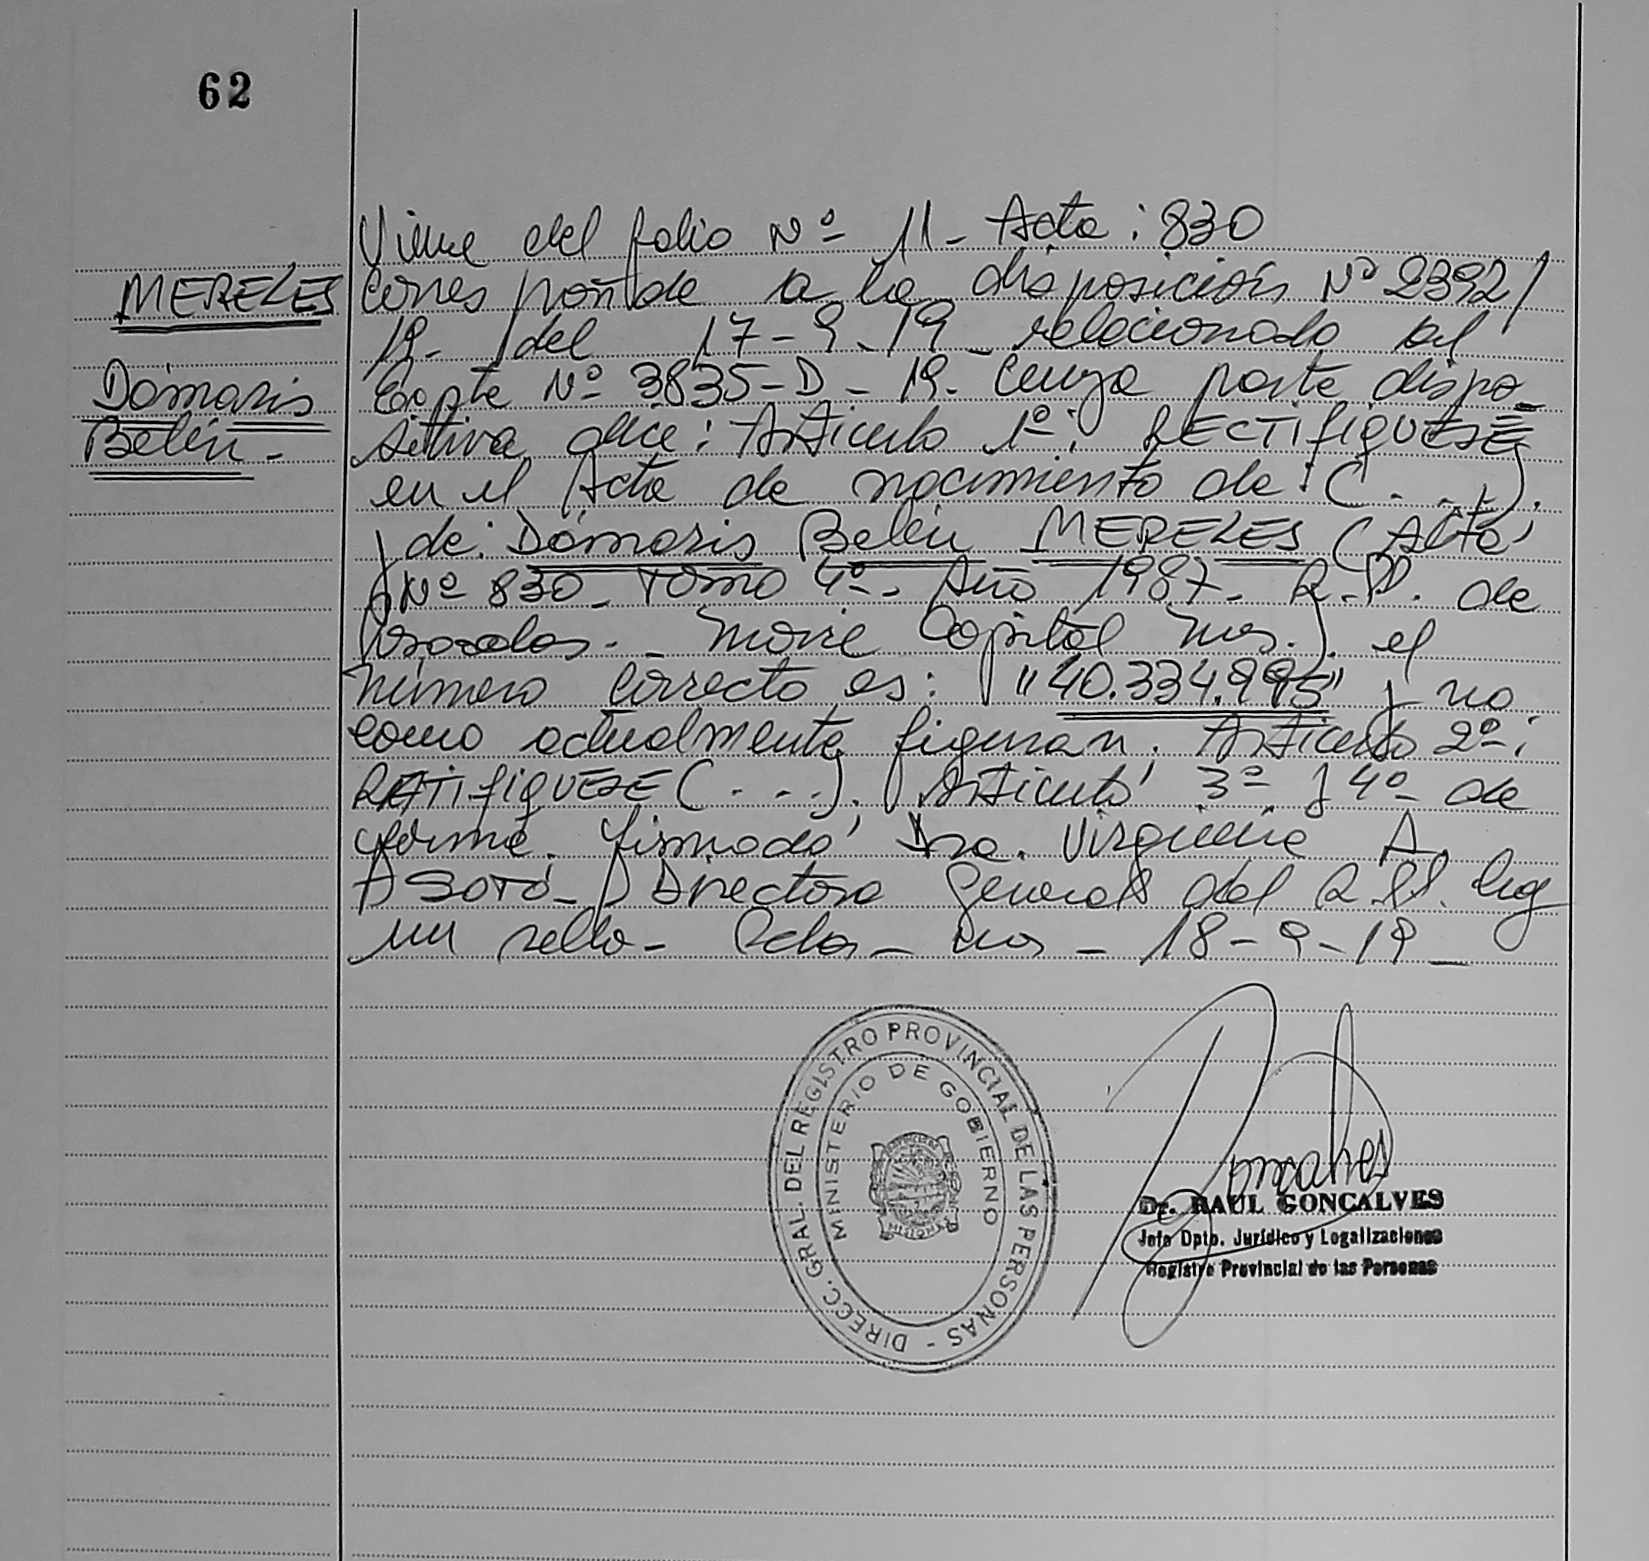 62
Viene del folio Nº 11- Acta: 830
MERELES
corresponde a la disposición Nº 2392/
19- del 17-9-19 relacionado al
Dámaris
Expte Nº 3835-D-19- cuya parte dispo-
Belén-
sitiva dice: Artículo 1º: RECTIFIQUESE
en el Acta de nacimiento de: (...).
y de: Dámaris Belén MERELES (Acta
Nº 830- Tomo 4º- Año 1987- R.P. de
Posadas.- Capital Mnes.). el
número correcto es: "40.334.995" y no
como actualmente figuran. Artículo 2º:
RATIFIQUESE (...). Artículo 3º y 4º de
forma. Firmado Dra. Virginia A.
SOTO- Directora General del R.P. hay
un sello- Pdas- Mnes- 18-9-19
DIRECC. GRAL. DEL REGISTRO PROVINCIAL DE LAS PERSONAS -
MINISTERIO DE GOBIERNO
MISIONES
Goncalves
Dr. RAUL GONCALVES
Jefe Dpto. Jurídico y Legalizaciones
Registro Provincial de las Personas